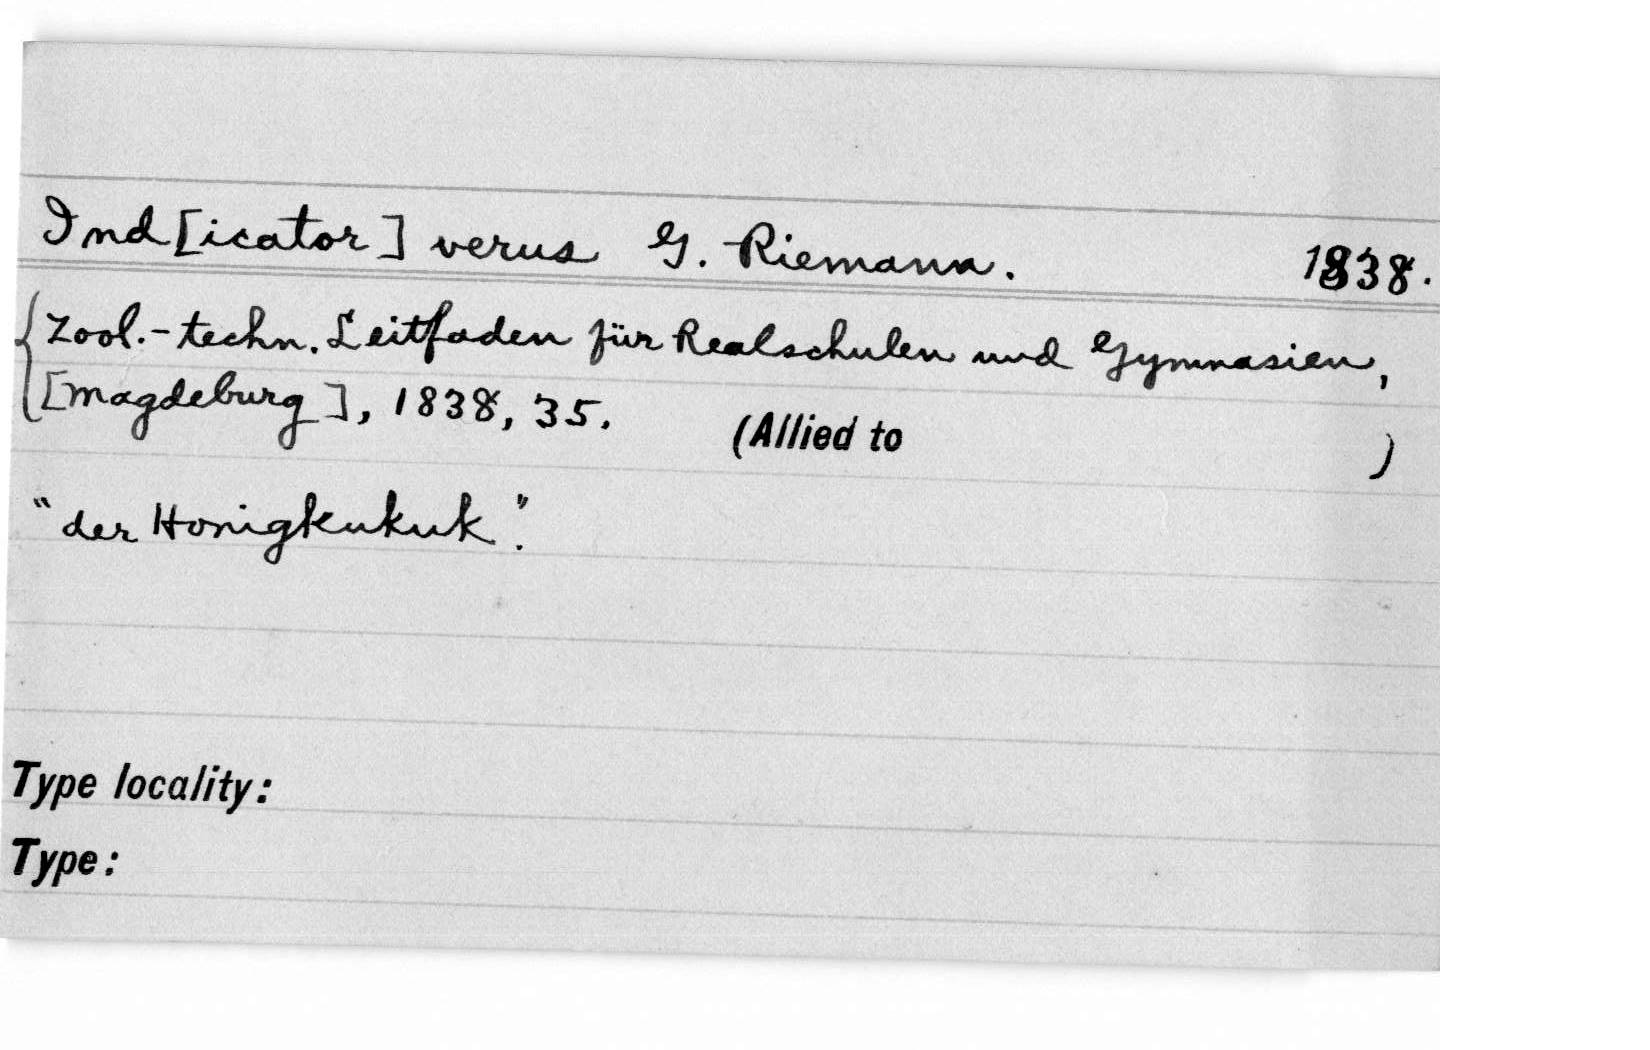 Ind[icator] verus G. Riemann. 1838.
Zool.-techn. Leitfaden für Realschulen und Gymnasien,
[Magdeburg], 1838, 35. (Allied to )
"der Honigkukuk".
Type locality:
Type: